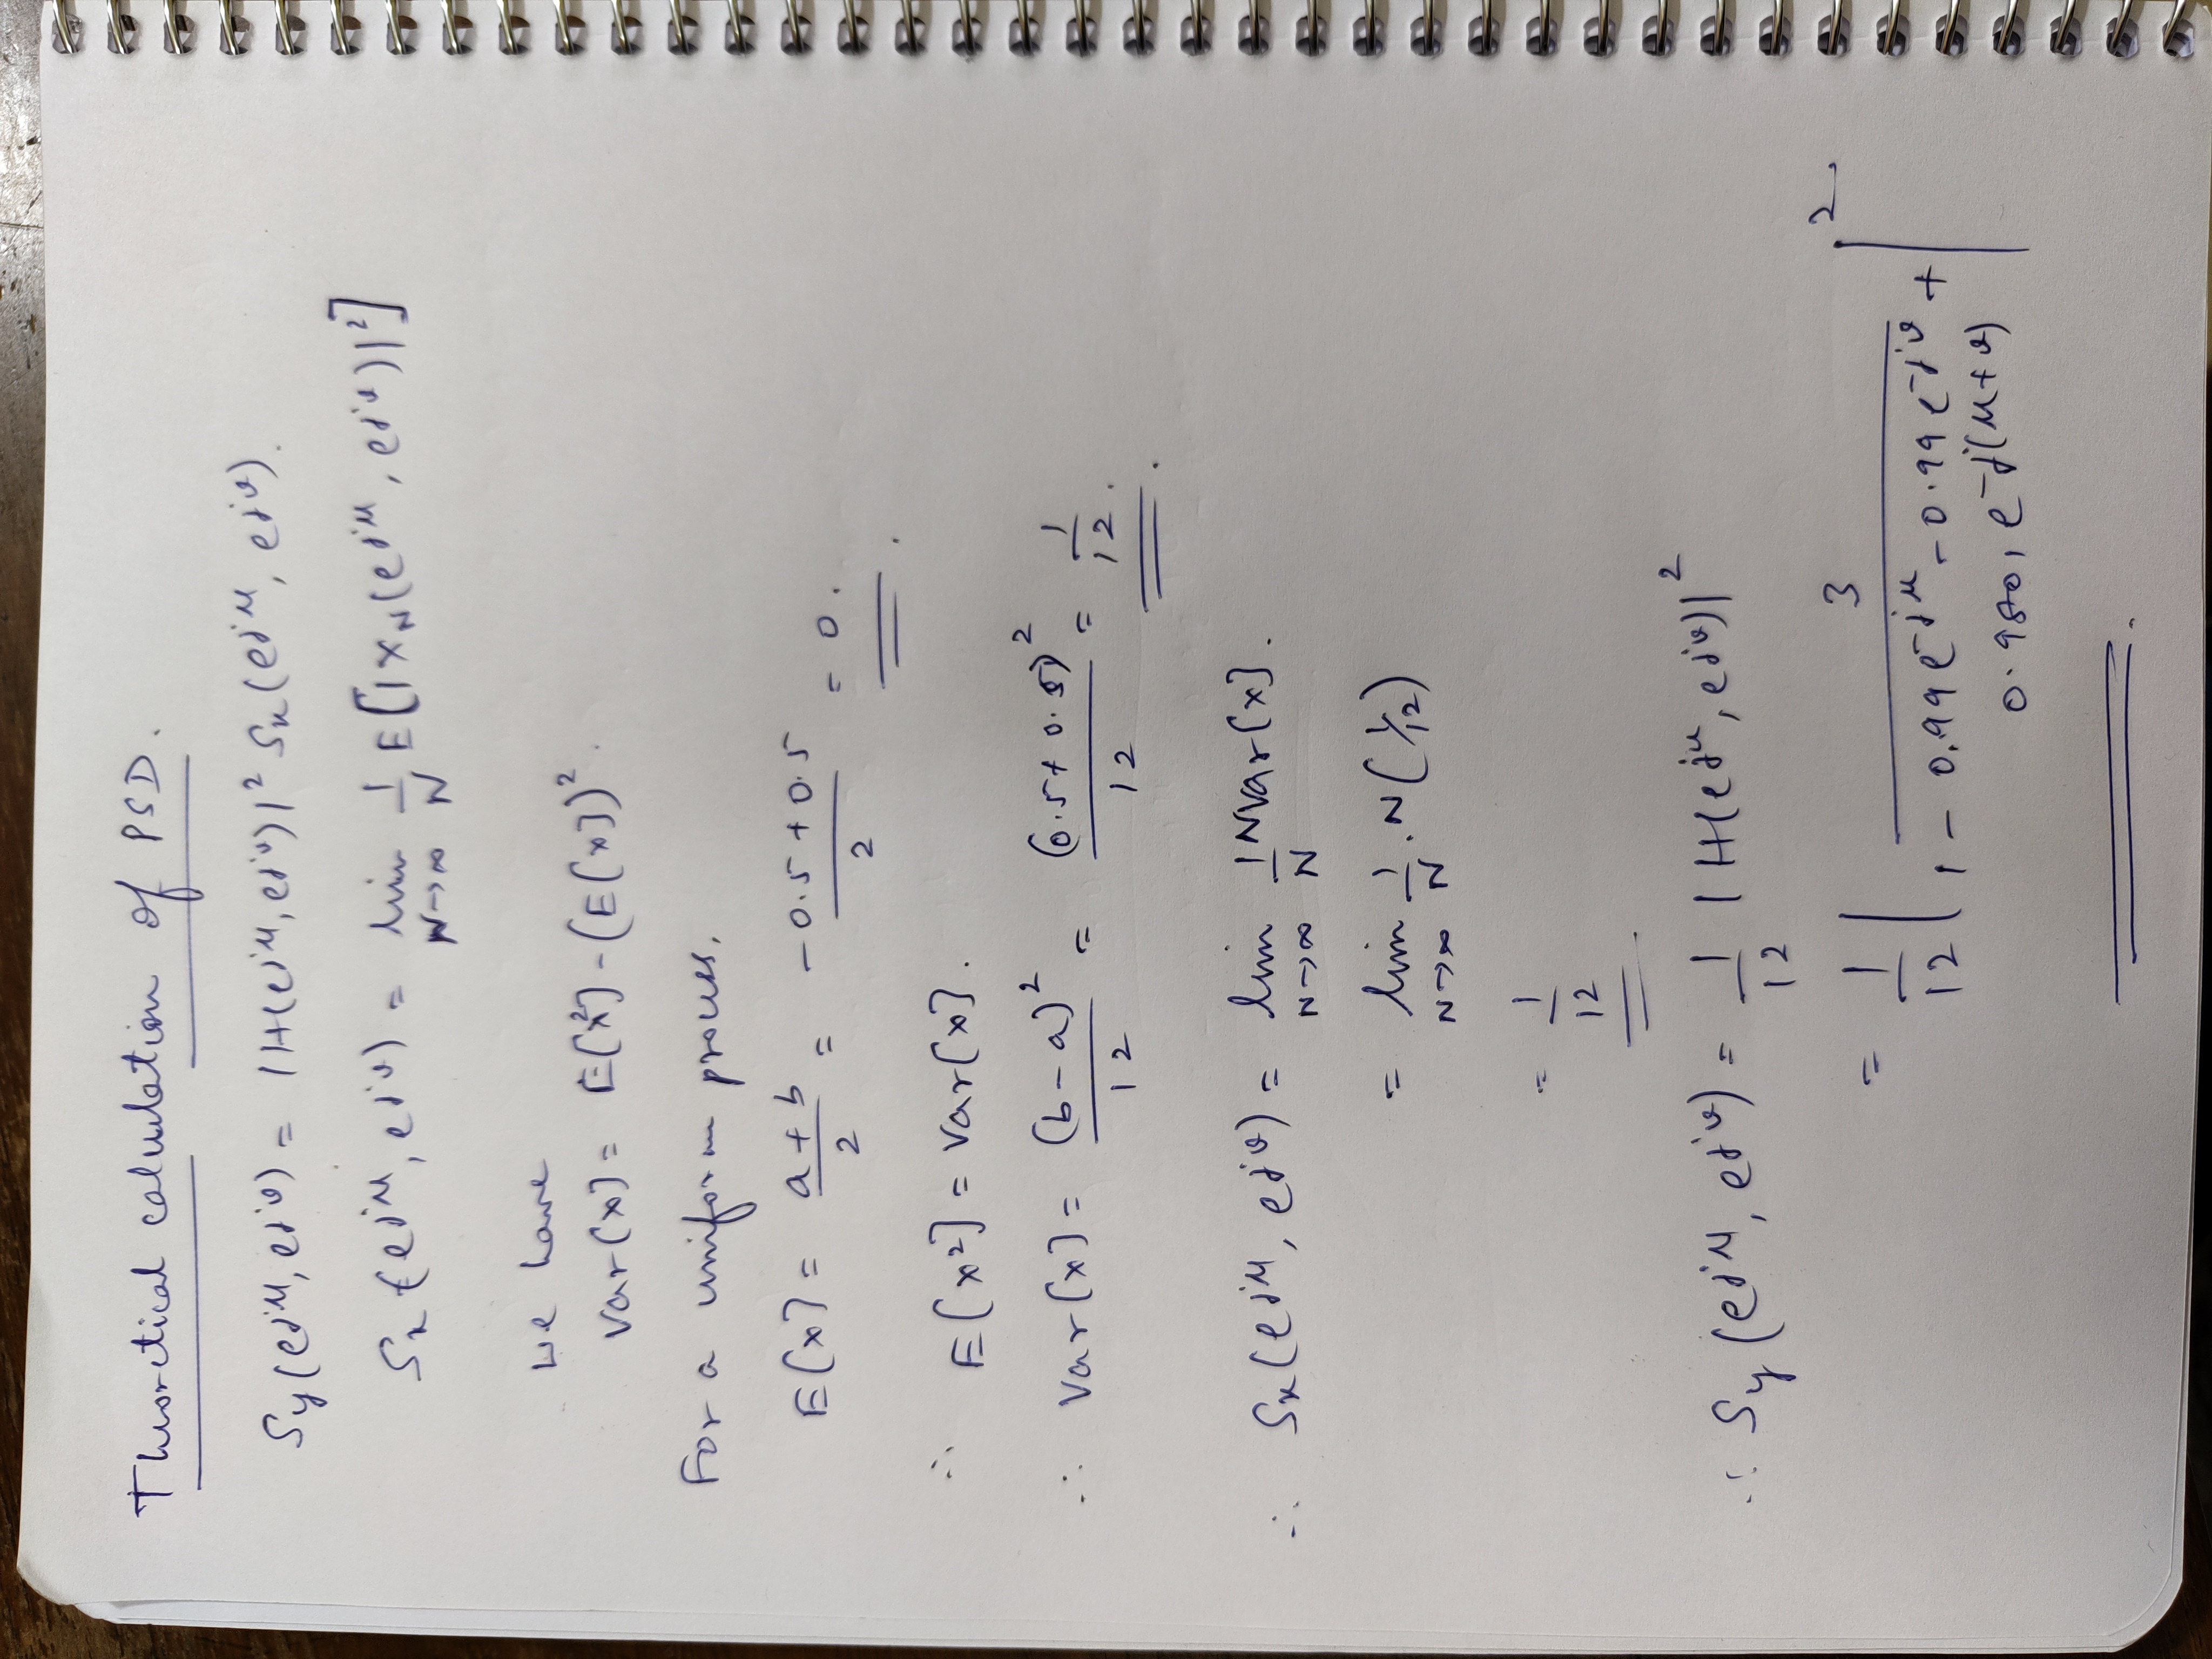 Theoretical calculation of PSD.
Sy(e^jμ, e^jν) = |H(e^jμ, e^jν)|² Sx(e^jμ, e^jν).
Sx(e^jμ, e^jν) = lim N→∞ 1/N E[|X_N(e^jμ, e^jν)|²]
We have
Var[x] = E[x²] - (E[x])².
For a uniform process,
E[x] = (a+b)/2 = (-0.5+0.5)/2 = 0.
∴ E[x²] = Var[x].
∴ Var[x] = (b-a)²/12 = (0.5+0.5)²/12 = 1/12.
∴ Sx(e^jμ, e^jν) = lim N→∞ 1/N N Var[x].
= lim N→∞ 1/N . N(1/12)
= 1/12
∴ Sy(e^jμ, e^jν) = 1/12 |H(e^jμ, e^jν)|²
= 1/12 | 3 / (1 - 0.99e^-jμ - 0.99e^-jν +
0.9801e^-j(μ+ν)) |².